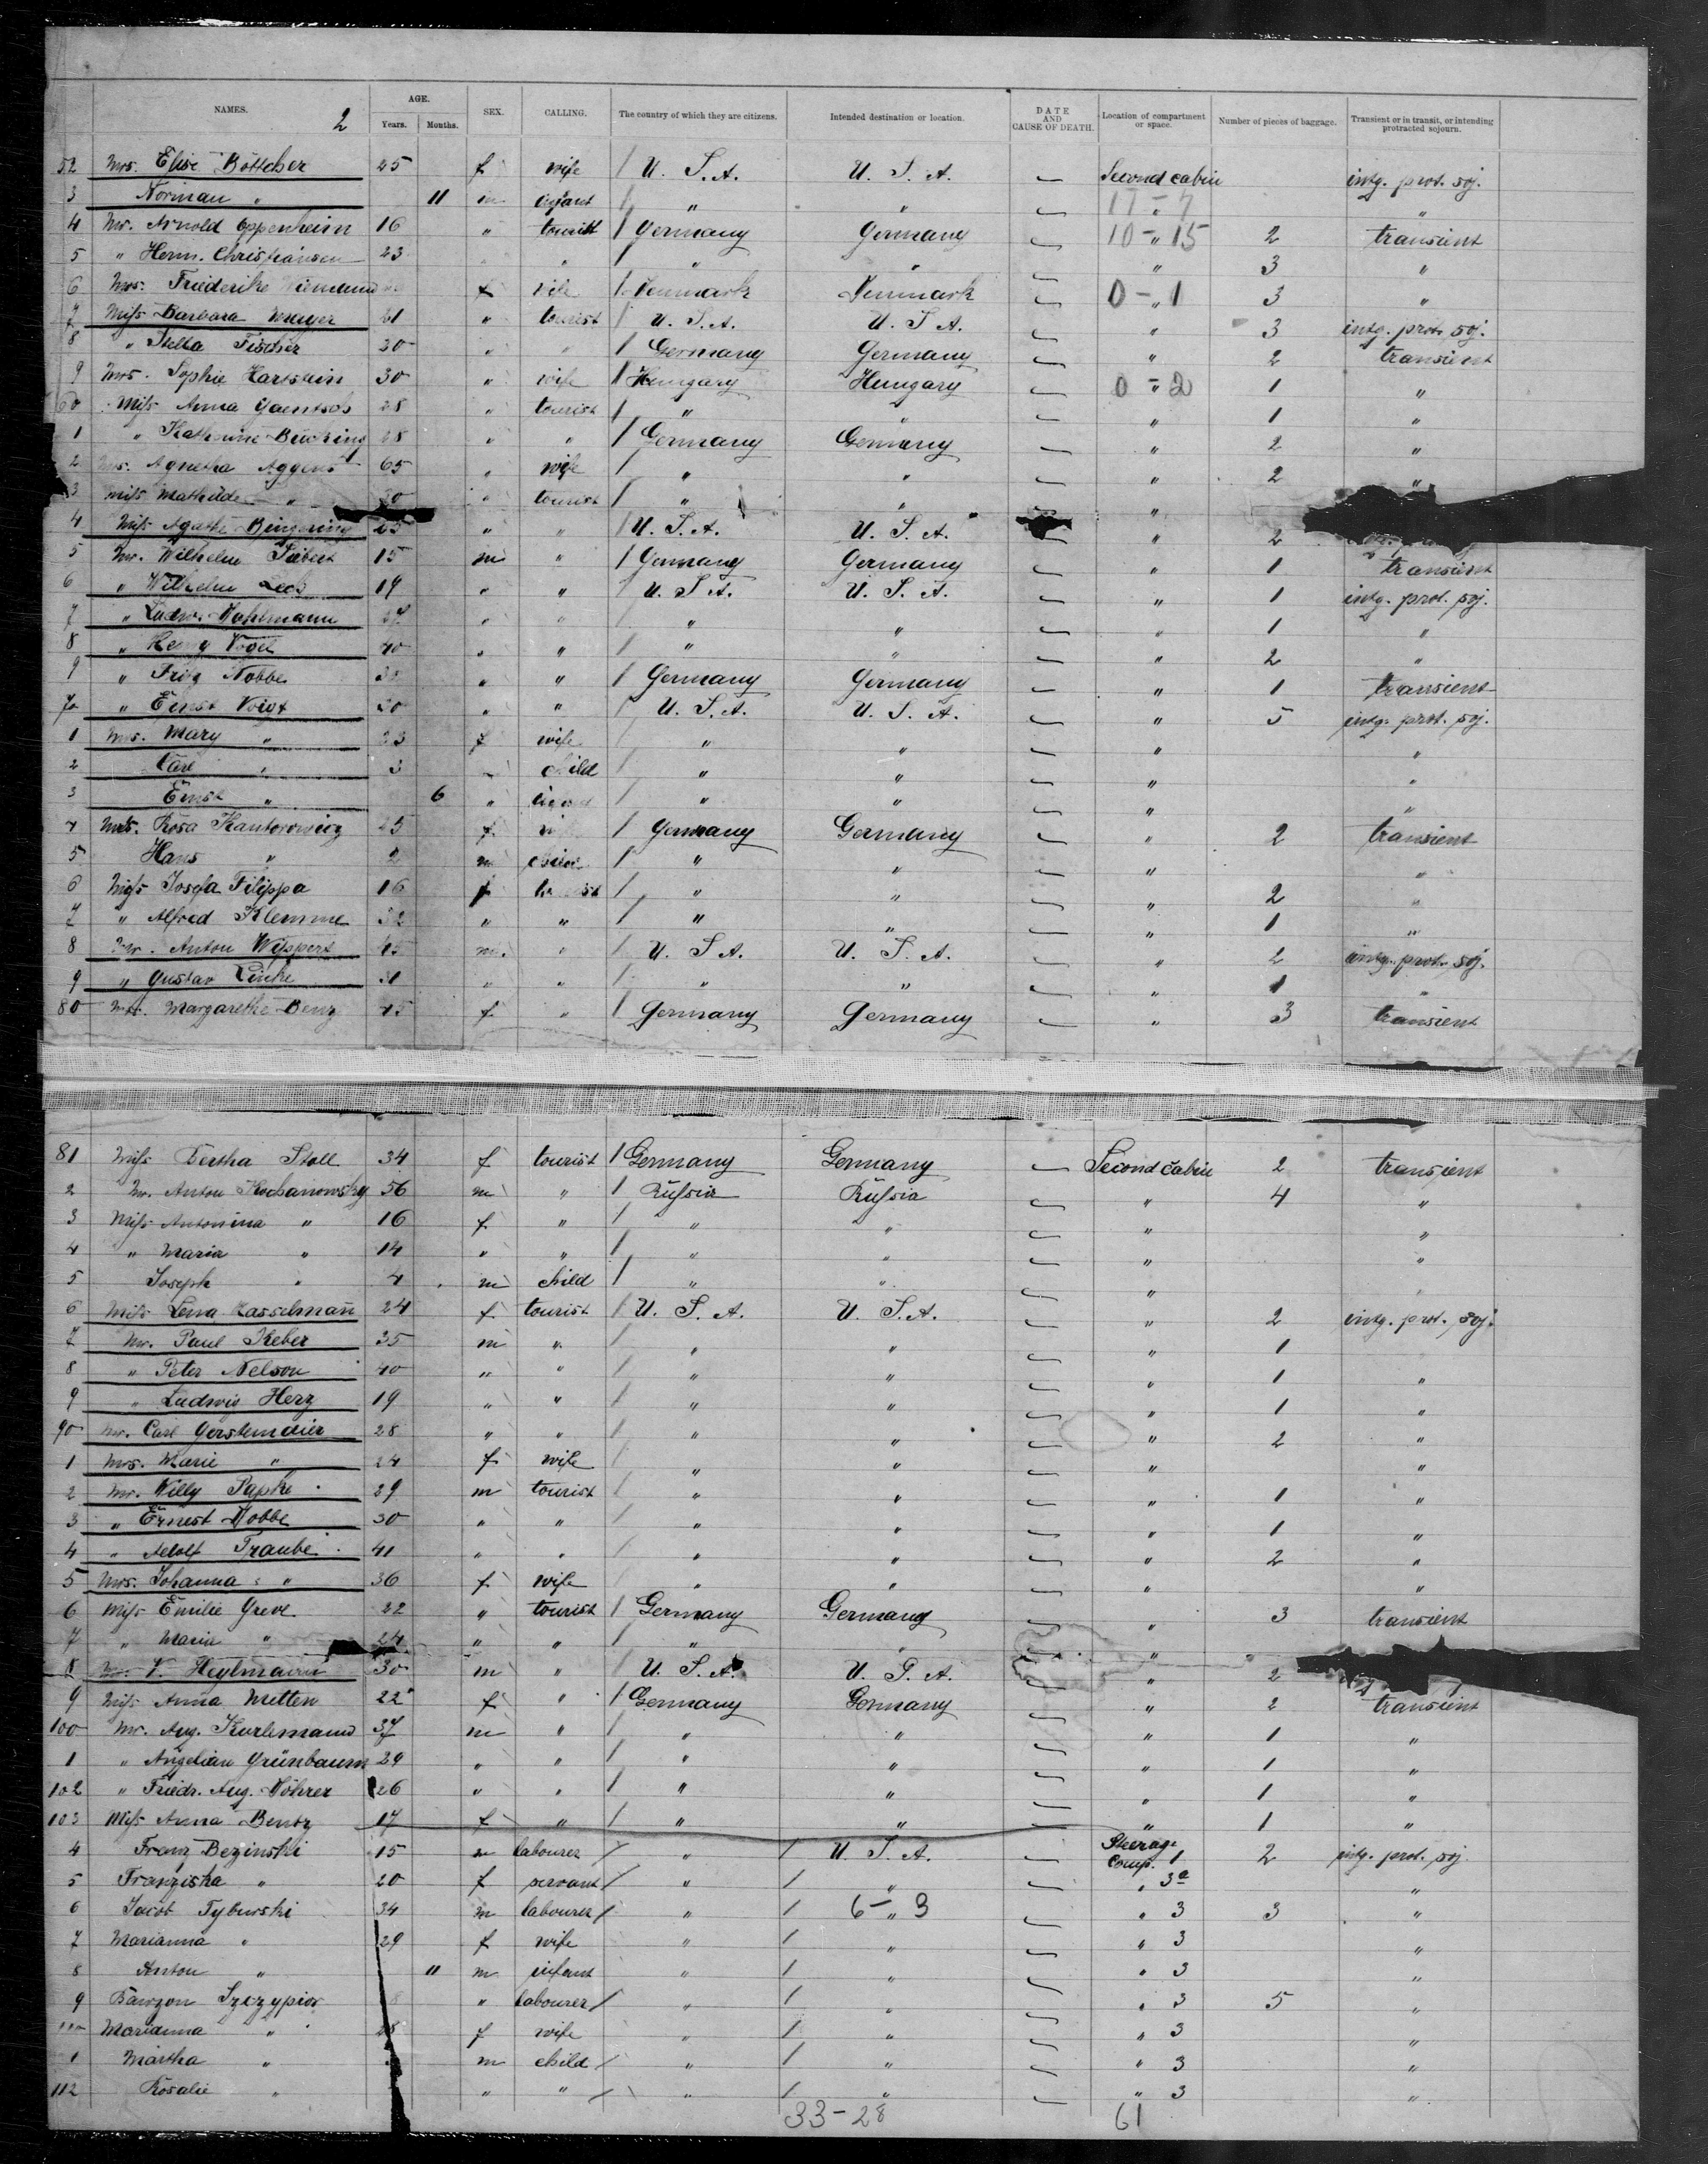 NAMES. 2 AGE. Years. Months. SEX. CALLING. The country of which they are citizens. Intended destination or location. DATE AND CAUSE OF DEATH. Location of compartment or space. Number of pieces of baggage. Transient or in transit, or intending protracted sojourn.
52 Mrs. Elise Böttcher 25 f wife / U. S. A. U. S. A. Second cabin intg. prot. soj.
3 Norman " 11 m infant / " " 17 - 7 "
4 Mr. Arnold Oppenheim 16 " tourist / Germany Germany 10 - 15 2 transient
5 " Herm. Christiansen 23 " " / " " " 3 "
6 Mrs. Friederike f wife / Denmark Denmark 0 - 1 3 "
7 Miss Barbara Meyer 21 " tourist / U. S. A. U. S. A. " 3 intg. prot. soj.
8 " Stella Fischer 30 " " / Germany Germany " 2 transient
9 Mrs. Sophie Hartstein 30 " wife / Hungary Hungary 0 - 2 1 "
60 Miss Anna 28 " tourist / " " " 1 "
1 " Katharine Bücking 28 " " / Germany Germany " 2 "
2 Mrs. Agnetha Aggens 65 " wife / " " " 2 "
3 Miss Mathilde " 30 " tourist / " " "
4 Miss Agathe 25 " " / U. S. A. U. S. A. " 2
5 Mr. Wilhelm Siebert 15 m " / Germany Germany " 1 transient
6 " Wilhelm 19 " " / U. S. A. U. S. A. " 1 intg. prot. soj.
7 " Ludw. 27 " " / " " " 1 "
8 " Vogel 40 " " / " " " 2 "
9 " Fritz Nobbe " " / Germany Germany " 1 transient
70 " Ernst Voigt 30 " " U. S. A. U. S. A. " 5 intg. prot. soj.
1 Mrs. Mary " 23 f wife / " " " "
2 Carl " 3 child / " " " "
3 Ernst " 6 " / " " " "
4 Mrs. Rosa Kantorowicz 25 f / Germany Germany " 2 transient
5 Hans " 2 m child / " " " "
6 Miss Josefa Filippa 16 f / " " " 2 "
7 " Alfred Klemme 32 " " / " " " 1 "
8 Mr. Anton Wippert 45 m " / U. S. A. U. S. A. " 2 intg. prot. soj.
9 " Gustav Linke 31 " " / " " " 1 "
80 Margarethe Benz 45 f " / Germany Germany " 3 transient
81 Miss Bertha Stoll 34 f tourist / Germany Germany Second cabin 2 transient
2 Mr. Anton Kochanowsky 56 m " / Russia Russia " 4 "
3 Miss Antonina " 16 f " / " " " "
4 " Maria " 14 " " / " " " "
5 Joseph " 4 m child / " " " "
6 Miss Lena Hasselmann 24 f tourist / U. S. A. U. S. A. " 2 intg. prot. soj.
7 Mr. Paul Keber 35 m " / " " " 1 "
8 " Peter Nelson 40 " " / " " " 1 "
9 " Ludwig Herz 19 " " / " " " 1 "
90 Mr. Carl Gerstemaier 28 " " / " " " 2 "
1 Mrs. Marie " 24 f wife / " " " "
2 Mr. Willy Papke 29 m tourist / " " " 1 "
3 " Ernest Nobbe 30 " " / " " " 1 "
4 " Adolf Traube 41 " " / " " " 2 "
5 Mrs. Johanna " 36 f wife / " " " "
6 Miss Emilie Greve 22 " tourist / Germany Germany " 3 transient
7 " Maria " 24 " " / " " "
8 V. Heylmann 30 m " / U. S. A. U. S. A. " 2
9 Miss Anna Metten 22 f " / Germany Germany " 2 transient
100 Mr. Aug. Kurlemann 37 m " / " " " 1 "
1 " Grünbaum 29 " " / " " " 1 "
102 " Friedr. Aug. Möhrer 26 " " / " " " 1 "
103 Miss Anna Bentz 17 f " / " " " 1 "
4 Franz Bezinski 15 m labourer / " / U. S. A. Steerage Comp. 1 2 intg. prot. soj.
5 Franziska " 20 f servant / " / " " 3a "
6 Jacob Tyburski 34 m labourer / " / 6 - 3 " 3 3 "
7 Marianna " 29 f wife " / " " 3 "
8 Anton " 11 m infant " / " " 3 "
9 Szczypior " labourer / " / " " 3 5 "
110 Marianna " 28 f wife " / " " 3 "
1 Martha " m child / " / " " 3 "
112 Rosalie " " " / " / " " 3 "
33 - 28 61